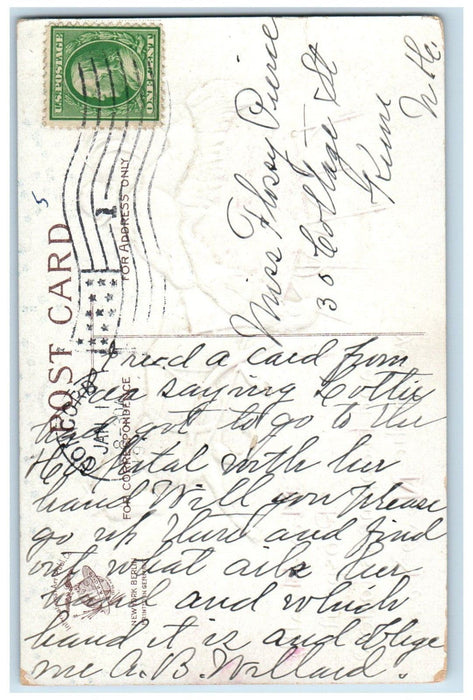 U.S. POSTAGE
ONE CENT
POST CARD
FOR ADDRESS ONLY
FOR CORRESPONDENCE
CONCORD
JAN 1
5
Miss Flossy Pierce
30 Cottage St
Keene
N H.
I recd a card from
saying Lottie
had got to go to the
Hospital with her
hand Will you please
go up there and find
out what ails her
hand and which
hand it is and oblige
me A. B. Willard.
NEW YORK BERLIN
PRINTED IN GERMANY